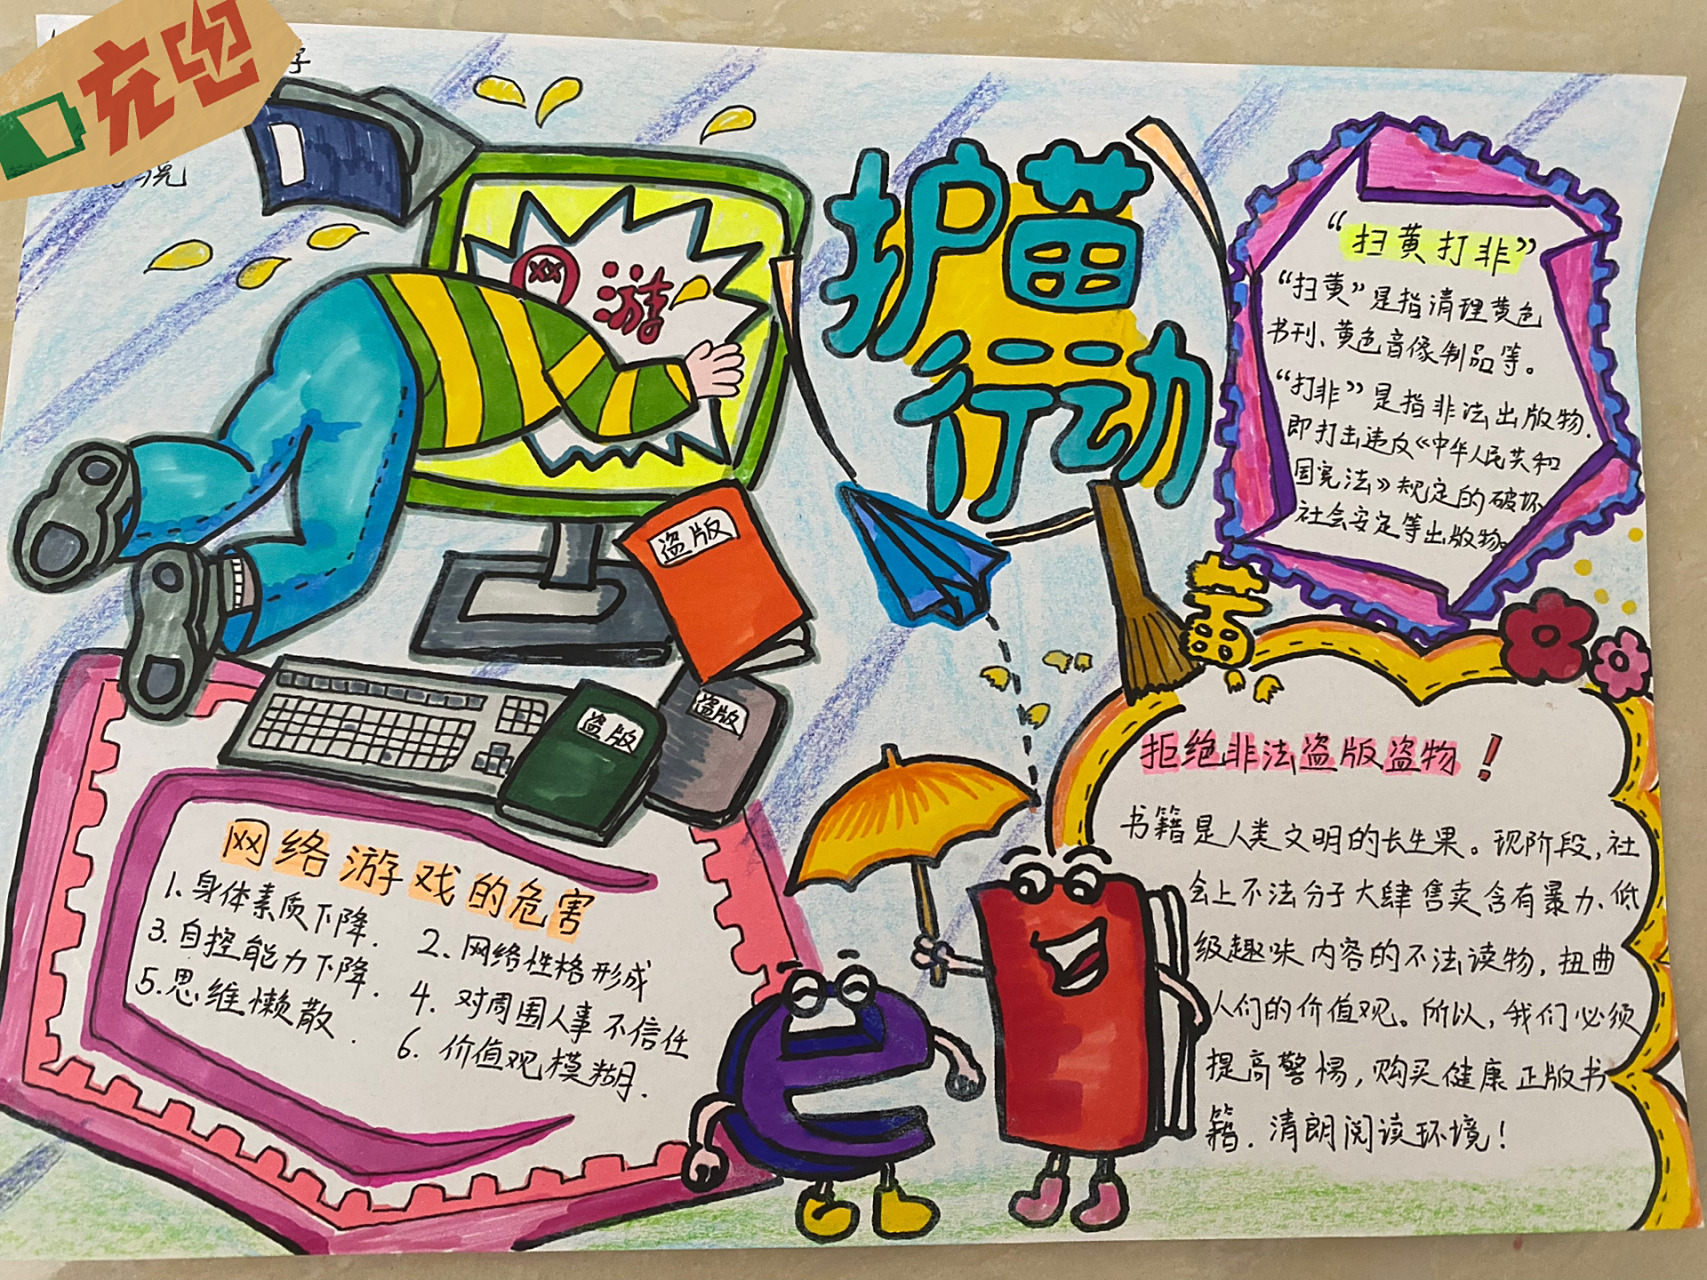 充电
护苗
行动
网游
盗版
盗版
盗版
“扫黄打非”
“扫黄”是指清理黄色
书刊、黄色音像制品等。
“打非”是指非法出版物.
即打击违反《中华人民共和
国宪法》规定的破坏
社会安定等出版物。
黄
网络游戏的危害
1.身体素质下降.
2.网络性格形成
3.自控能力下降.
4.对周围人事不信任
5.思维懒散.
6.价值观模糊.
拒绝非法盗版盗物!
书籍是人类文明的长生果。现阶段,社
会上不法分子大肆售卖含有暴力、低
级趣味内容的不法读物,扭曲
人们的价值观。所以,我们必须
提高警惕,购买健康正版书
籍.清朗阅读环境!